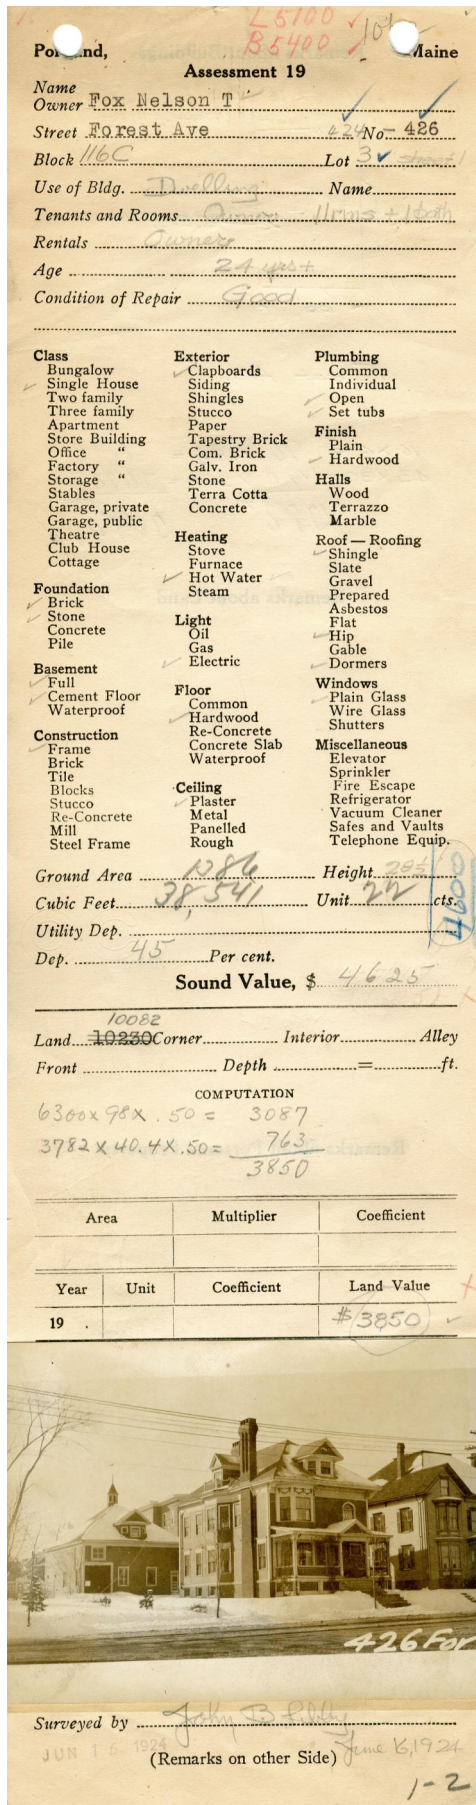 L5100
B5400
Portland, Maine
Assessment 19
Name
Owner Fox Nelson T
Street Forest Ave 424 No- 426
Block 116C Lot 3 sheet 1
Use of Bldg. Dwelling Name
Tenants and Rooms Owner - 11rms + 1 bath
Rentals Owner
Age 24 yrs+
Condition of Repair Good
Class
Bungalow
Single House
Two family
Three family
Apartment
Store Building
Office "
Factory "
Storage "
Stables
Garage, private
Garage, public
Theatre
Club House
Cottage
Foundation
Brick
Stone
Concrete
Pile
Basement
Full
Cement Floor
Waterproof
Construction
Frame
Brick
Tile
Blocks
Stucco
Re-Concrete
Mill
Steel Frame
Exterior
Clapboards
Siding
Shingles
Stucco
Paper
Tapestry Brick
Com. Brick
Galv. Iron
Stone
Terra Cotta
Concrete
Heating
Stove
Furnace
Hot Water
Steam
Light
Oil
Gas
Electric
Floor
Common
Hardwood
Re-Concrete
Concrete Slab
Waterproof
Ceiling
Plaster
Metal
Panelled
Rough
Plumbing
Common
Individual
Open
Set tubs
Finish
Plain
Hardwood
Halls
Wood
Terrazzo
Marble
Roof — Roofing
Shingle
Slate
Gravel
Prepared
Asbestos
Flat
Hip
Gable
Dormers
Windows
Plain Glass
Wire Glass
Shutters
Miscellaneous
Elevator
Sprinkler
Fire Escape
Refrigerator
Vacuum Cleaner
Safes and Vaults
Telephone Equip.
4600
Ground Area 1386 Height 28½
Cubic Feet 38,541 Unit 22 cts.
Utility Dep.
Dep. 45 Per cent.
Sound Value, $ 4625
10082
Land 10230 Corner Interior Alley
Front Depth = ft.
COMPUTATION
6300 x 98 x .50 = 3087
3782 x 40.4 x .50 = 763
3850
Area Multiplier Coefficient
Year Unit Coefficient Land Value
19 . $3850
426 For
Surveyed by John B Libby
JUN 16 1924 June 16, 1924
(Remarks on other Side)
1-2